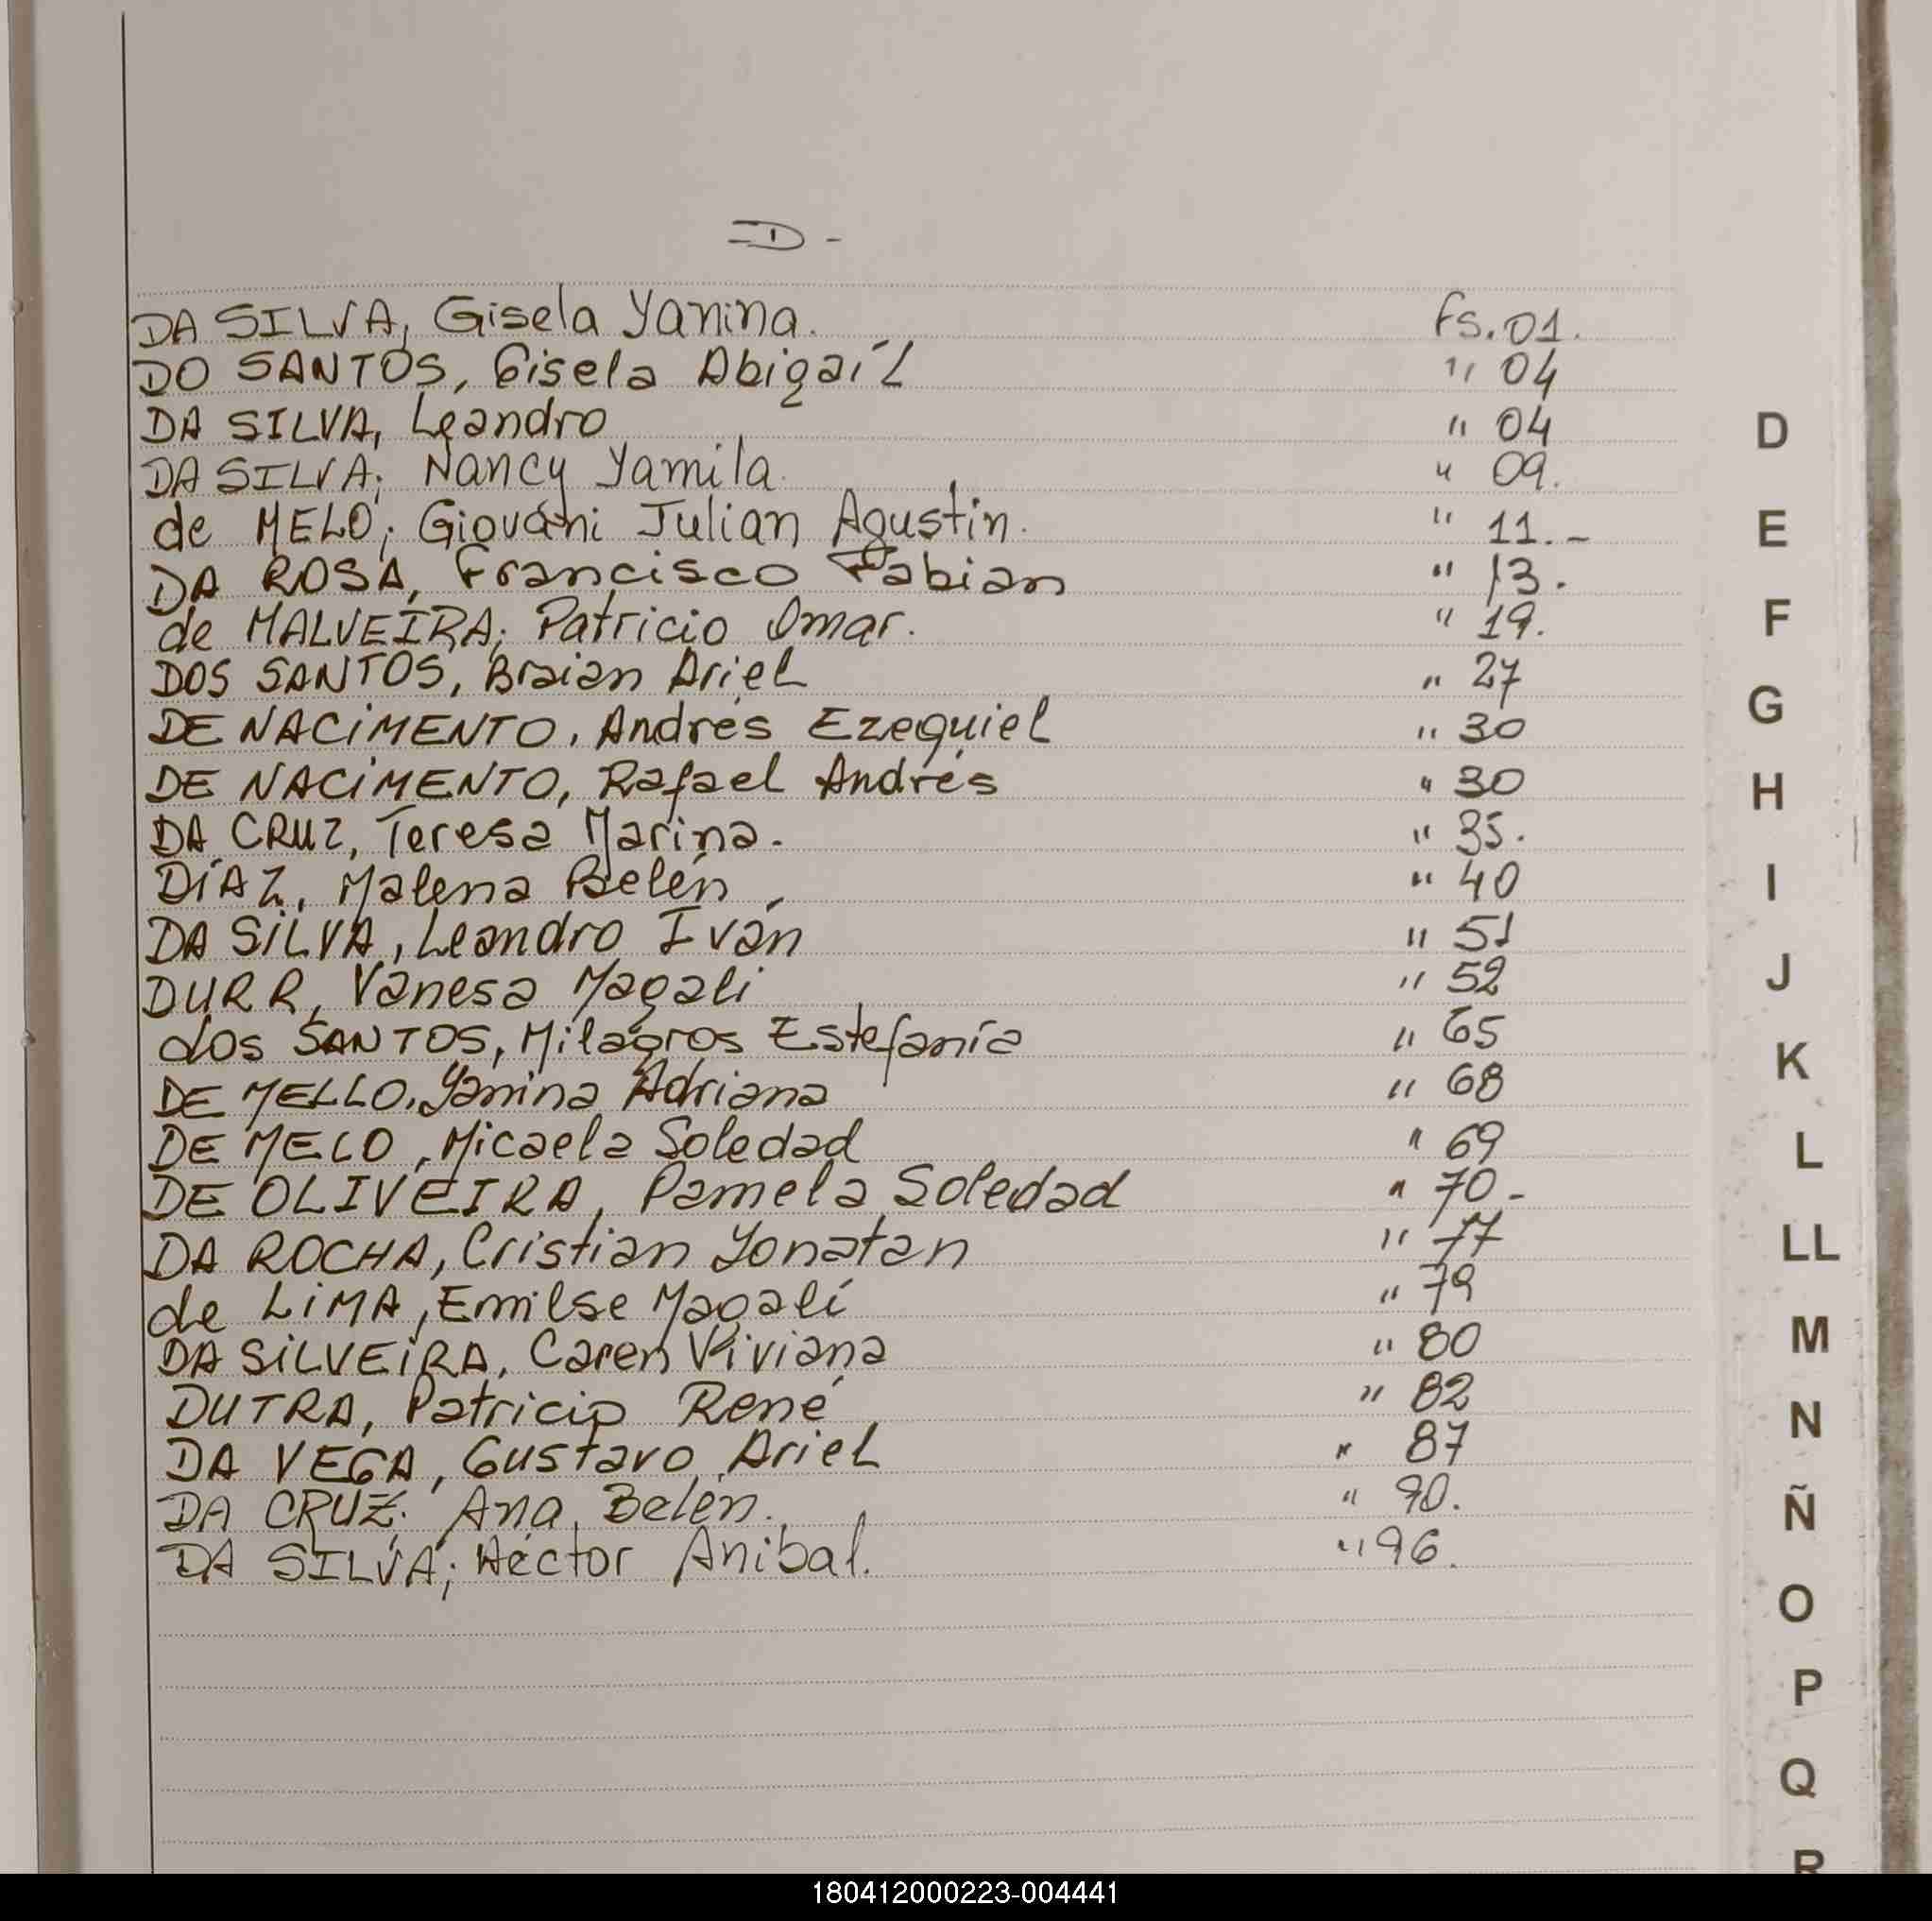 - D -
DA SILVA, Gisela Yanina. Fs. 01.
DO SANTOS, Gisela Abigaíl " 04
DA SILVA, Leandro " 04
DA SILVA; Nancy Yamila. " 09.
de MELO; Giováni Julian Agustin. " 11.-
DA ROSA, Francisco Fabian " 13.
de MALVEIRA; Patricio Omar. " 19.
DOS SANTOS, Braian Ariel " 27
DE NACiMENTO, Andrés Ezequiel " 30
DE NACiMENTO, Rafael Andrés " 30
DA CRUZ, Teresa Marina. " 35.
DÍAZ, Malena Belén " 40
DA SiLVA, Leandro Iván " 51
DURR, Vanesa Magali " 52
dos SANTOS, Milagros Estefanía " 65
DE MELLO, Yanina Adriana " 68
DE MELO, Micaela Soledad " 69
DE OLIVEIRA, Pamela Soledad " 70-
DA ROCHA, Cristian Yonatan " 77
de LiMA, Emilse Magalí " 79
DA SiLVEiRA, Caren Viviana " 80
DUTRA, Patricio René " 82
DA VEGA, Gustavo Ariel " 87
DA CRUZ; Ana Belén. " 90.
DA SILVA; Héctor Anibal. " 96.
D
E
F
G
H
I
J
K
L
LL
M
N
Ñ
O
P
Q
R
180412000223-004441